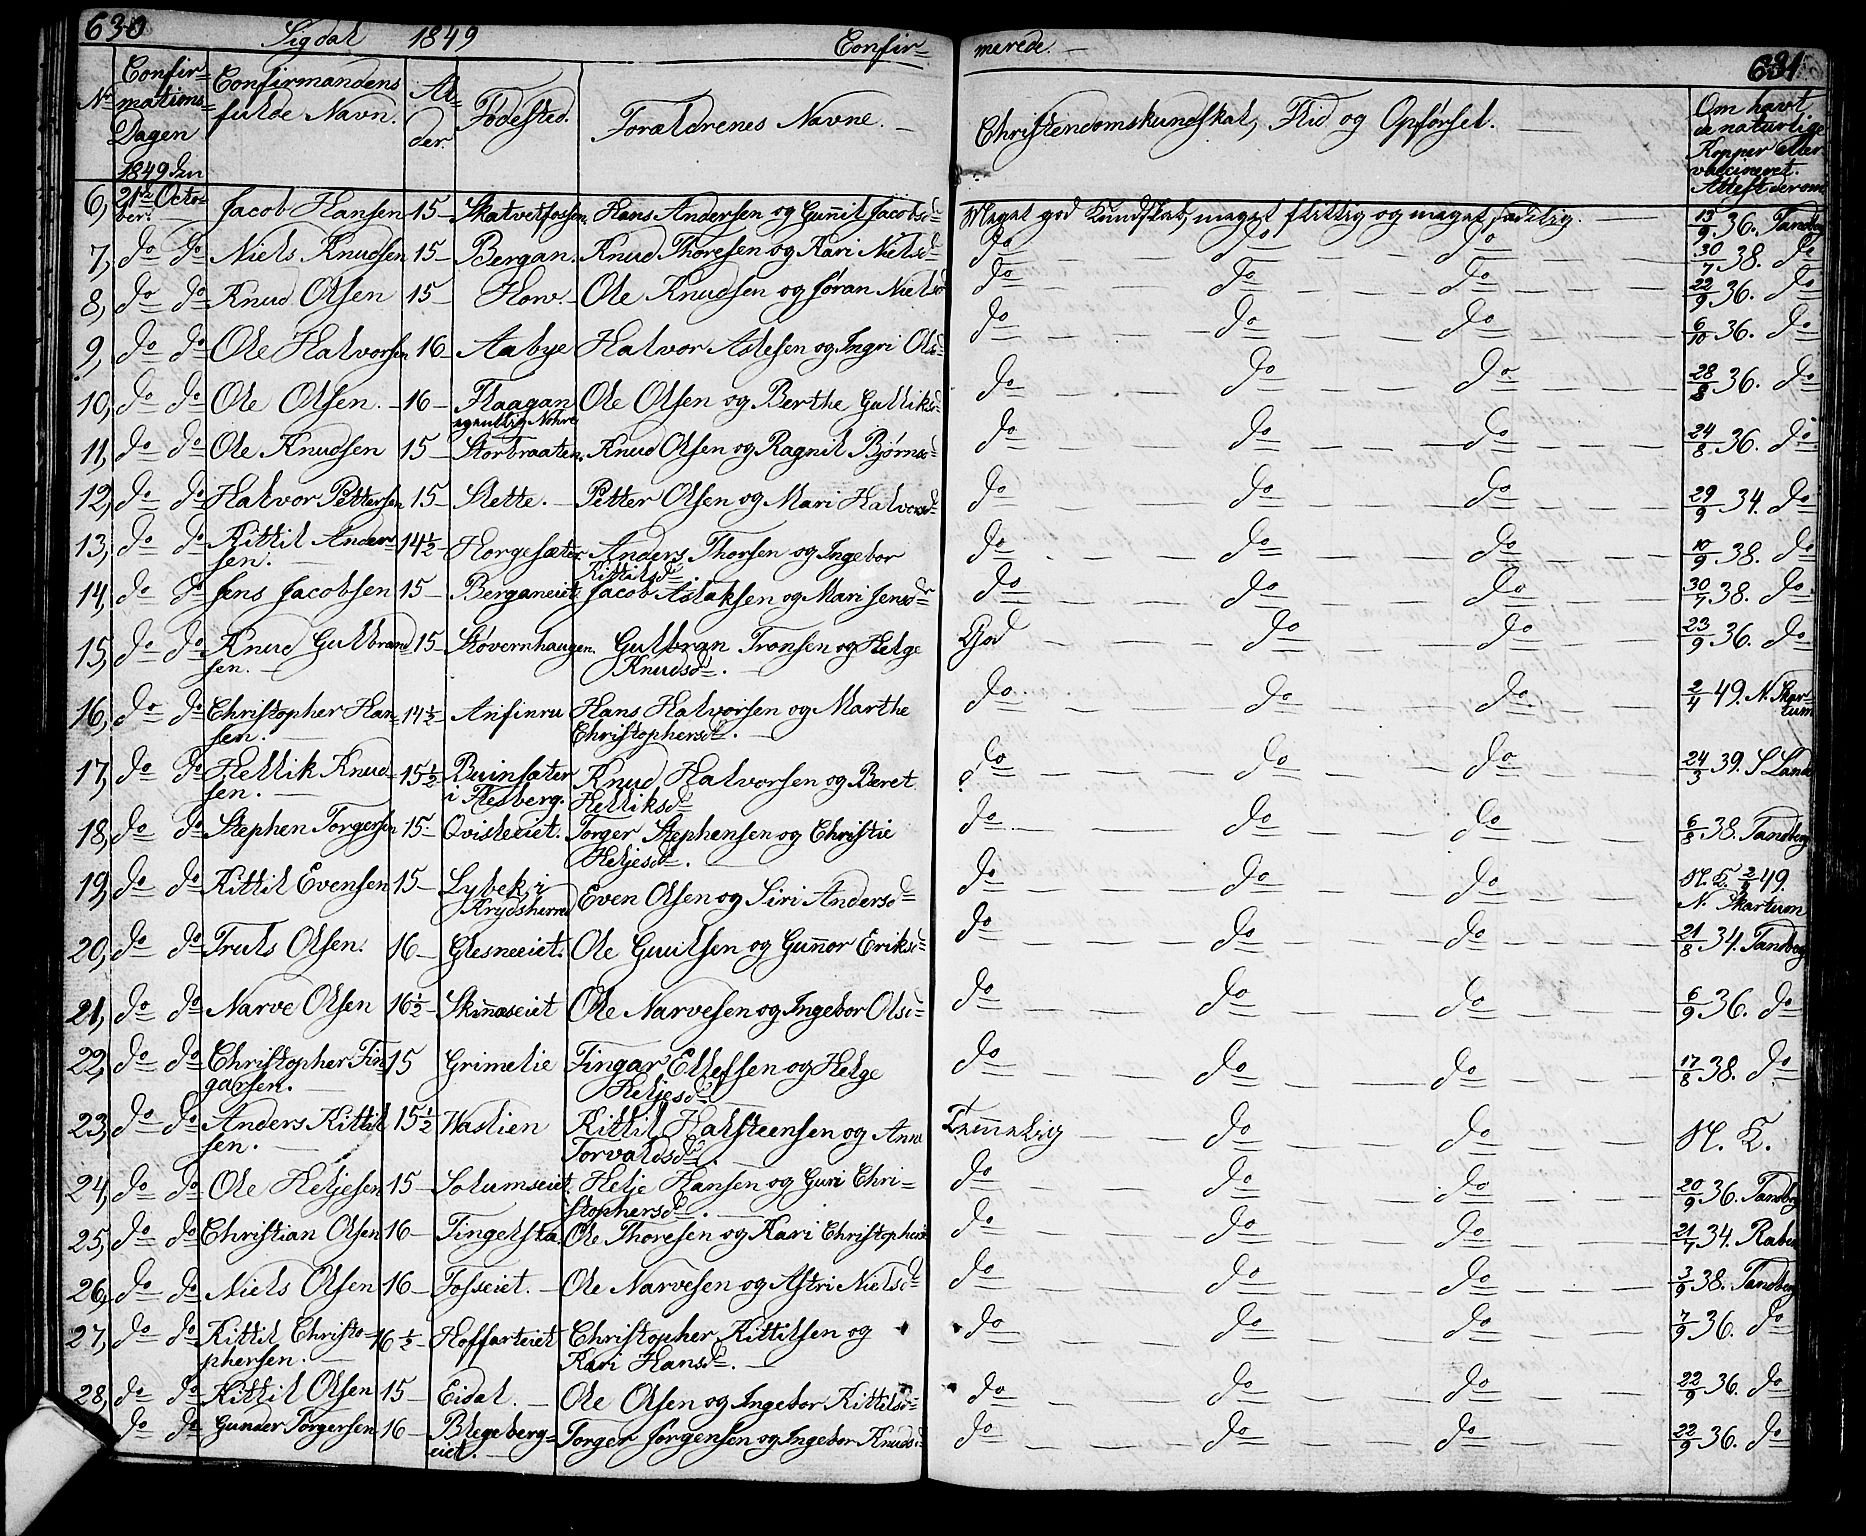 630 Sigdal 1849 Confir=
merede. — 631
No Confir=mations=Dagen 1849 Confirmandens fulde Navn. Al=der. Fødested. Forældrenes Navne. — Christendomskundskab, Flid og Opførsel. — Om havt de naturlige Kopper eller vaccineret. Attest derom
6, 21de Octo=ber. Jacob Hansen 15 — Skatvetfossen Hans Andersen og Gunnil Jacobsd. Meget god Kundskab, meget flittig og meget sædelig. 13/9 36. Tandberg
7, do do Niels Knudsen 15 — Bergan. Knud Thoresen og Kari Nielsd. do — do — do — 30/7 38. do
8, do do Knud Olsen 15 — Hov. — Ole Knudsen og Jøran Nielsd. do — do — do — 22/9 36. do
9, do do Ole Halvorsen 16 — Aabye Halvor Aslesen og Ingri Olsd. do — do — do — 6/10 36. do
10, do do Ole Olsen. — 16 — Flaagan egentlig Nohre Ole Olsen og Berthe Gulliksd. do — do — do — 28/8 36. do
11, do do Ole Knudsen 15 — Storbraaten. Knud Olsen og Ragnil Bjørnsd. do — do — do — 24/8 36. do
12, do do Halvor Pettersen 15 — Slette. — Petter Olsen og Mari Halvorsd. do — do — do — 29/9 34. do
13, do do Kittil Ander=sen. — 14½ — Horgesæter Anders Thorsen og Ingebor Kittilsd. do — do — do — 10/9 38. do
14, do do Jens Jacobsen 15 — Berganeiet Jacob Aslaksen og Mari Jensdr. do — do — do — 30/7 38. do
15, do do Knud Gulbrand=sen. — 15 Støvernhaugen. Gulbran Tronsen og Helge Knudsd. — God — do — do — 23/9 36. do
16, do do Christopher Han=sen. — 14½ — Anfinru Hans Halvorsen og Marthe Christophersd. — do — do — do — 2/4 49. N. Skar=tum
17, do do Hellik Knud=sen. — 15½ Buinsæter i Flesberg. Knud Halvorsen og Beret Helliksd. do — do — do — 24/3 39. S Lande
18, do do Stephen Torgersen 15 — Qvisleeiet. Torger Stephensen og Christie Heljesd. do — do — do — 6/8 38. Tandberg
19, do do Kittil Evensen 15 — Lybek i Krydsherred Even Olsen og Siri Andersd. do — do — do — N. K. 2/4 49. N. Skartum
20, do do Truls Olsen. 16 — Glesneeiet. Ole Guulsen og Gunnor Eriksd. do — do — do — 21/8 34. Tandberg
21, do do Narve Olsen 16½ — Skinnaseiet Ole Narvesen og Ingebor Olsd. do — do — do — 6/9 36. do
22, do do Christopher Fin=garsen. — 15 Grimelie Fingar Ellefsen og Helge Heljesd. do — do — do — 17/8 38. do
23, do do Anders Kittil=sen. — 15½ Waslien Kittil Halsteensen og Anne Torvaldsd. — Temmelig — do — do — N. K.
24, do do Ole Heljesen 15 — Solumseiet. Helje Hansen og Guri Chri=stophersd. — do — do — do — 20/9 36. Tandberg
25, do do Christian Olsen 16 — Tingelstad. Ole Thoresen og Kari Christophersd. do — do — do — 21/7 34. Raben
26, do do Niels Olsen 16 — Fosseiet. — Ole Narvesen og Astri Nielsd. do — do — do — 3/9 38. Tandberg
27, do do Kittil Christo=phersen. — 16½ — Hoffarteiet Christopher Kittilsen og Kari Hansd. — do — do — do — 7/9 36. do
28, do do Kittil Olsen 15 — Eidal. — Ole Olsen og Ingebor Kittelsd. do — do — do — 22/9 36. do
do do Gunder Torgersen 16 — Blegeberg=eiet. — Torger Jørgensen og Ingebor Knudsd. do — do — do — 22/9 36. do